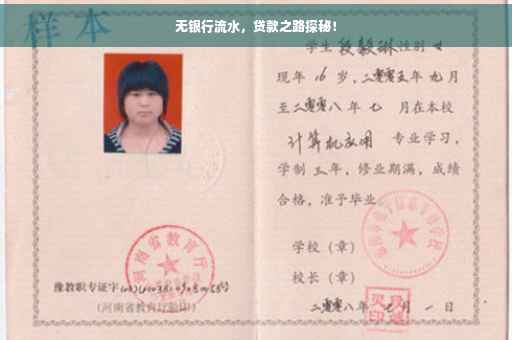 无银行流水，贷款之路探秘！
样本
学生段毅琳性别女
现年16岁，二零零五年九月
至二零零八年七 月在本校
计算机应用 专业学习，
学制三年，修业期满，成绩
合格，准予毕业。
学校（章）
校长（章）
二零零八年七月一日
河南省教育厅
豫教职专证字
（河南省教育厅验印）